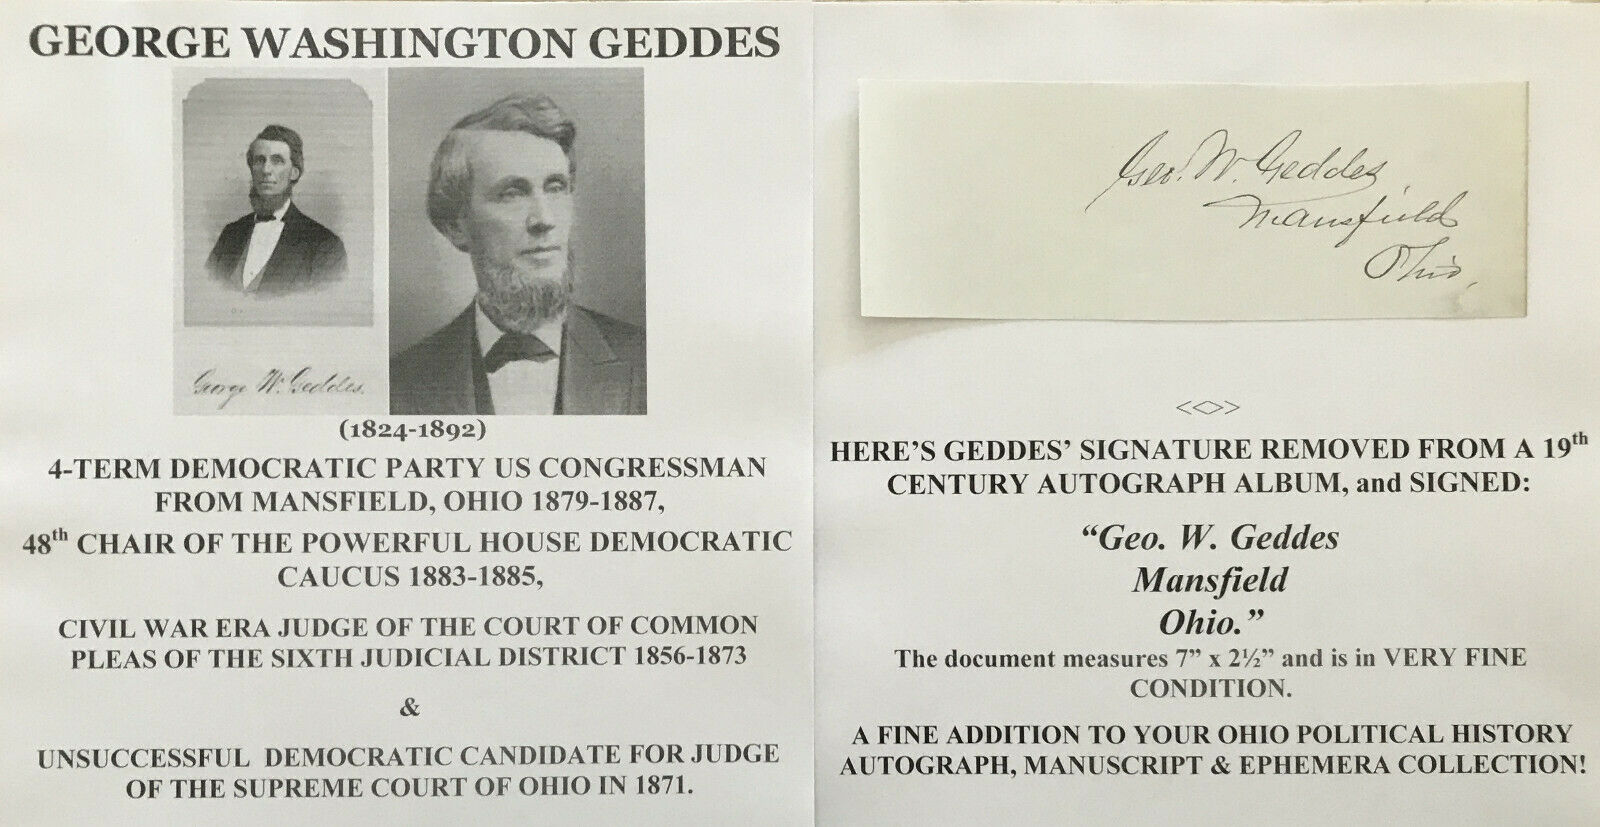 GEORGE WASHINGTON GEDDES
George W. Geddes.
(1824-1892)
4-TERM DEMOCRATIC PARTY US CONGRESSMAN
FROM MANSFIELD, OHIO 1879-1887,
48th CHAIR OF THE POWERFUL HOUSE DEMOCRATIC
CAUCUS 1883-1885,
CIVIL WAR ERA JUDGE OF THE COURT OF COMMON
PLEAS OF THE SIXTH JUDICIAL DISTRICT 1856-1873
&
UNSUCCESSFUL DEMOCRATIC CANDIDATE FOR JUDGE
OF THE SUPREME COURT OF OHIO IN 1871.
Geo. W. Geddes,
Mansfield
Ohio,
<<>>
HERE’S GEDDES’ SIGNATURE REMOVED FROM A 19th
CENTURY AUTOGRAPH ALBUM, and SIGNED:
“Geo. W. Geddes
Mansfield
Ohio.”
The document measures 7” x 2½” and is in VERY FINE
CONDITION.
A FINE ADDITION TO YOUR OHIO POLITICAL HISTORY
AUTOGRAPH, MANUSCRIPT & EPHEMERA COLLECTION!